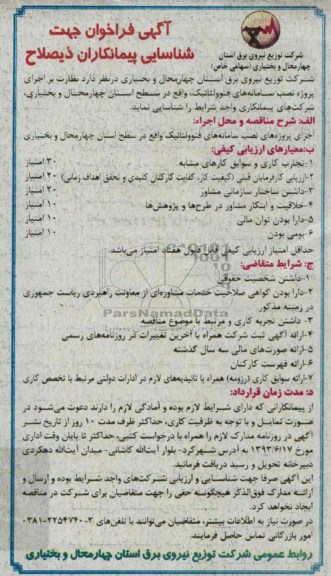 آگهی فراخوان جهت
شناسایی پیمانکاران ذیصلاح
شرکت توزیع نیروی برق استان
چهارمحال و بختیاری (سهامی خاص)
شرکت توزیع نیروی برق استان چهارمحال و بختیاری درنظر دارد نظارت بر اجرای
پروژه نصب سامانه‌های فتوولتائیک، واقع در سطح استان چهارمحال و بختیاری،
شرکت‌های پیمانکاری واجد شرایط را شناسایی نماید.
الف: شرح مناقصه و محل اجراء:
اجرای پروژه‌های نصب سامانه‌های فتوولتائیک واقع در سطح استان چهارمحال و بختیاری
ب:معیارهای ارزیابی کیفی:
۱-تجارب کاری و سوابق کارهای مشابه ۳۰ امتیاز
۲-ارزیابی کارفرمایان قبلی (کیفیت کار، کفایت کارکنان کلیدی و تحقق اهداف زمانی) ۲۰ امتیاز
۳-داشتن ساختار سازمانی مشاور ۲۰ امتیاز
۴-خلاقیت و ابتکار مشاور در طرح‌ها و پژوهش‌ها ۱۰ امتیاز
۵-دارا بودن توان مالی ۱۰ امتیاز
۶-بومی بودن ۱۰ امتیاز
حداقل امتیاز ارزیابی کیفی قابل قبول هفتاد امتیاز می‌باشد.
ج: شرایط متقاضی:
۱-داشتن شخصیت حقوقی
۲-دارا بودن گواهی صلاحیت خدمات مشاوره‌ای از معاونت راهبردی ریاست جمهوری
در زمینه مذکور
۳- داشتن تجربه کاری و مرتبط با موضوع مناقصه
۴-ارائه آگهی ثبت شرکت همراه با آخرین تغییرات در روزنامه‌های رسمی
۵-ارائه صورت‌های مالی سه سال گذشته
۶-ارائه فهرست کارکنان
۷-ارائه سوابق کاری (رزومه) همراه با تائیدیه‌های لازم در ادارات دولتی مرتبط با تخصص کاری
د: مدت زمان قرارداد:
از پیمانکارانی که دارای شرایط لازم بوده و آمادگی لازم را دارند دعوت می‌شود در
صورت تمایل و با توجه به ظرفیت کاری، حداکثر ظرف مدت ۱۰ روز از تاریخ نشر
آگهی در روزنامه مدارک لازم را همراه با درخواست کتبی، حداکثر تا پایان وقت اداری
مورخ ۱۳۹۳/۶/۱۷ به آدرس شهرکرد- بلوار آیت‌الله کاشانی- میدان آیت‌الله دهکردی
دبیرخانه تحویل و رسید دریافت فرمایند.
این آگهی صرفا جهت شناسایی و ارزیابی شرکت‌های واجد شرایط بوده و ارسال و
ارائه مدارک فوق‌الذکر هیچگونه حقی را جهت متقاضیان برای شرکت در مناقصه
ایجاد نخواهد کرد.
در صورت نیاز به اطلاعات بیشتر، متقاضیان می‌توانند با تلفن‌های ۳-۲۲۵۴۷۴۰-۰۳۸۱
امور بازرگانی تماس حاصل فرمایند.
روابط عمومی شرکت توزیع نیروی برق استان چهارمحال و بختیاری
ParsNamadData